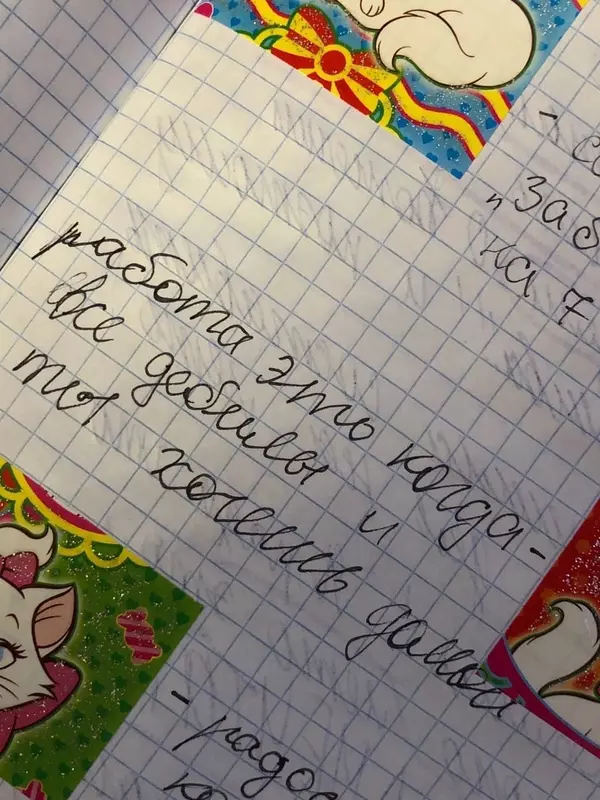 - со
"Заб
на 7
работа это когда-
все дебилы и
ты хочешь домой
- радос
ко